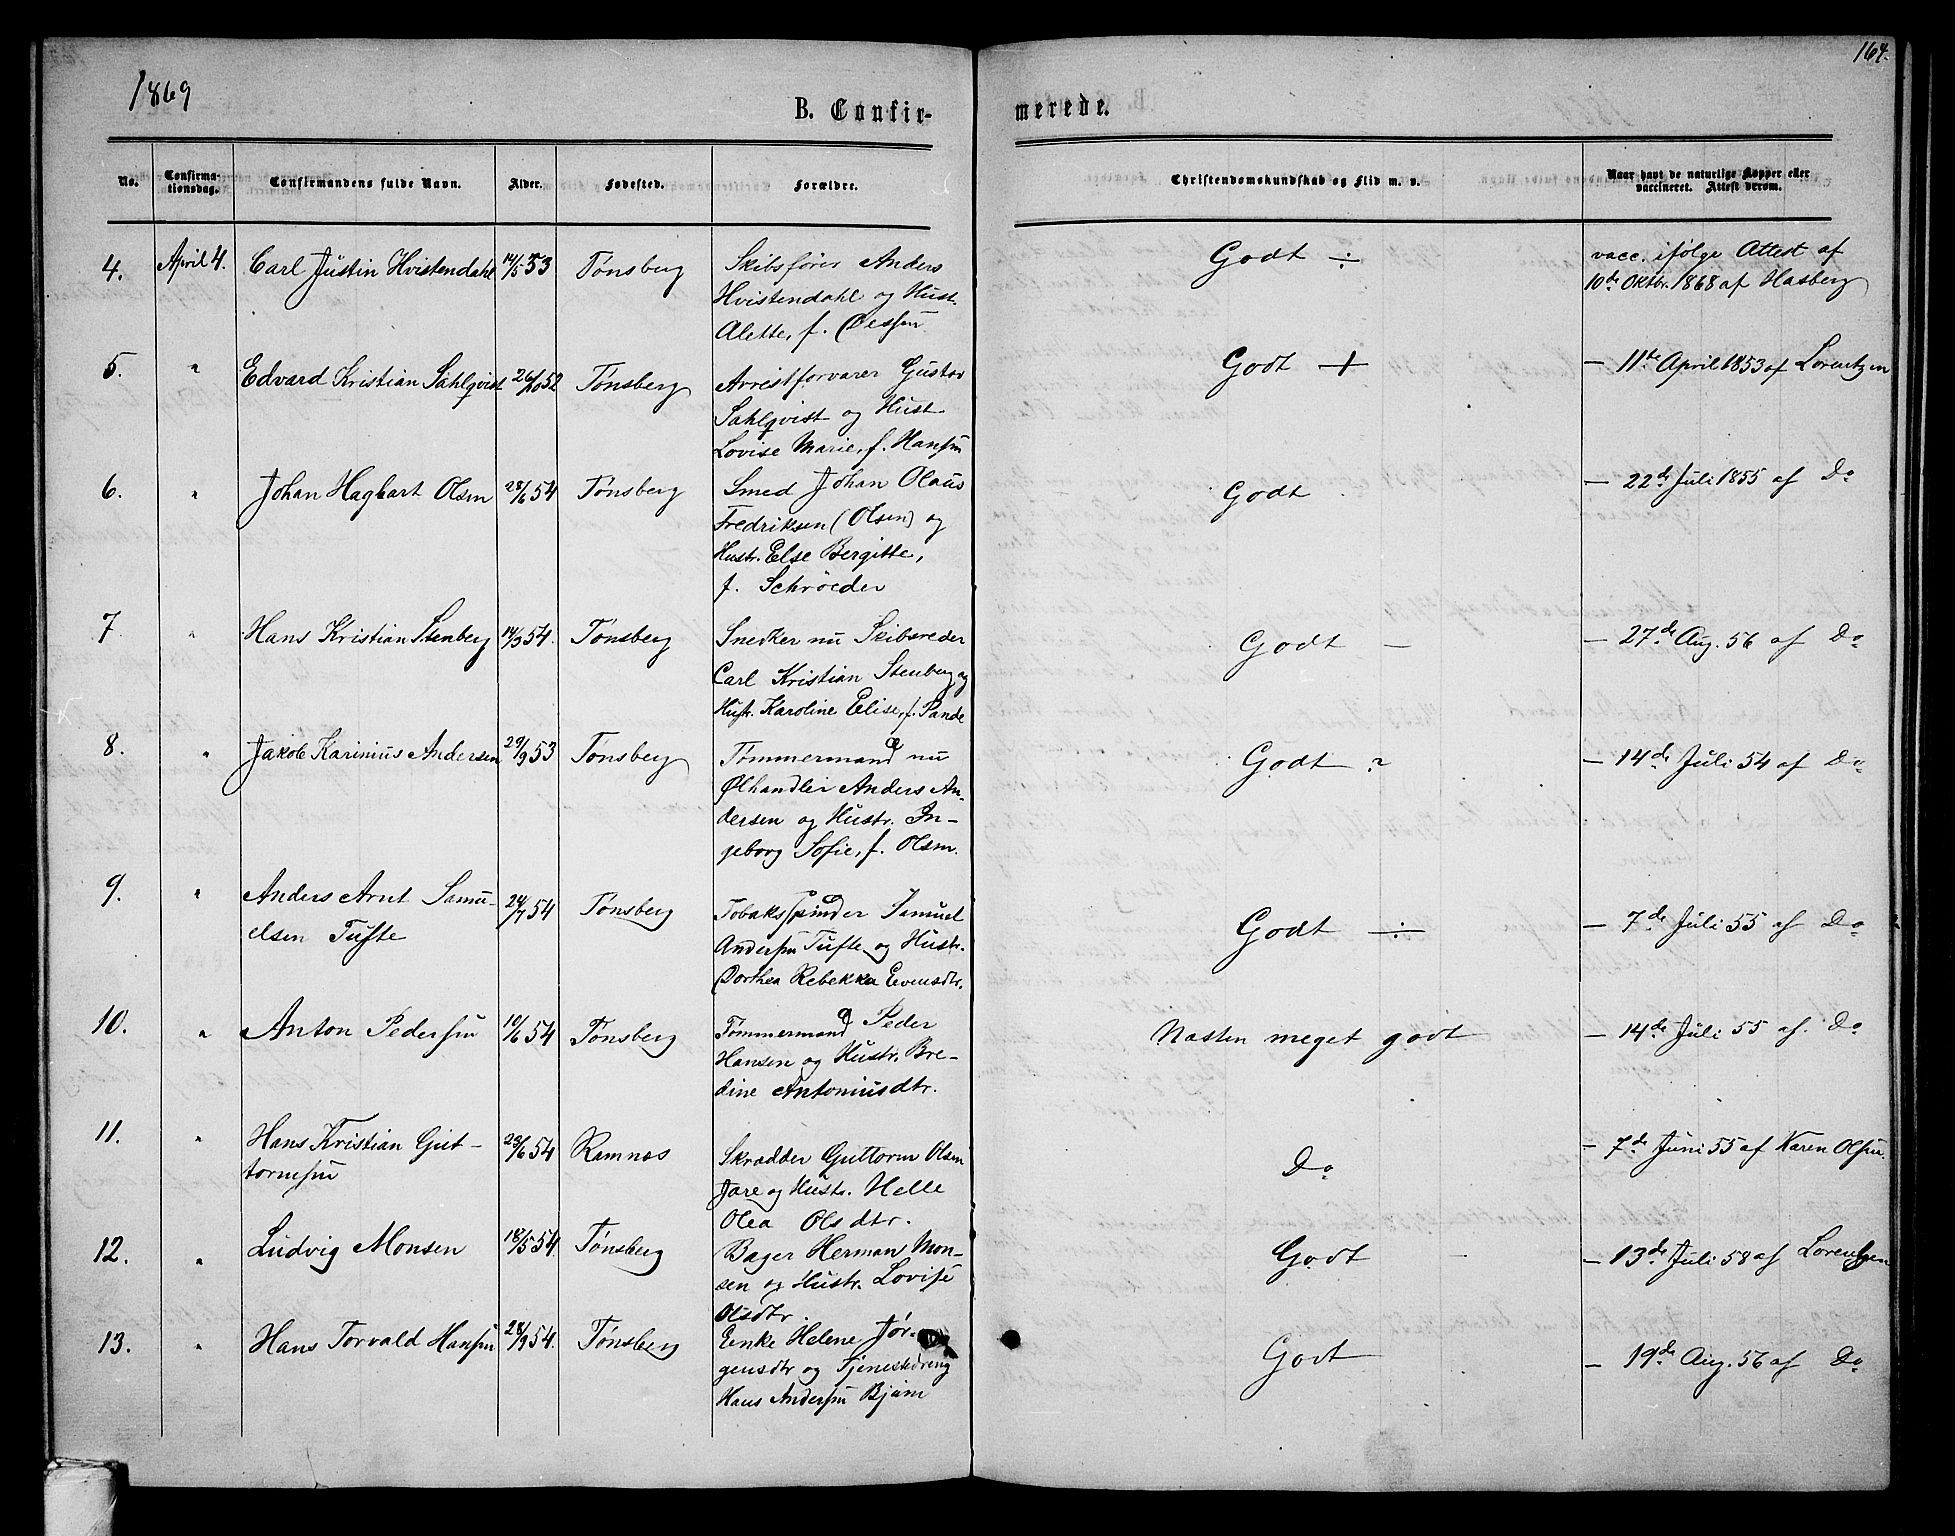 164.
1869
B. Confirmerede.
No. Confirmationsdag. Confirmandens fulde Navn. Alder. Fødested. Forældre. Christendomskundskab og Flid m. v. Naar havt de naturlige Kopper eller vaccineret. Attest derom.
4. April 4. Carl Justin Hvistendahl 14/5 53 Tønsberg Skibsfører Anders Godt ÷ vacc. ifølge Attest af
Hvistendahl og Hust. 10de Oktbr. 1868 af Hasberg
Alette, f.
5. " Edvard Kristian Sahlqvist 26/10 52 Tønsberg Arrestforvarer Gustav Godt + — 11te April 1853 af Lorentzen
Sahlqvist og Hust.
Lovise Marie, f. Hansen
6. " Johan Hagbart Olsen 28/6 54 Tønsberg Smed Johan Olaus Godt — 22de Juli 1855 af Do
Fredriksen (Olsen) og
Hustr. Else Bergitte,
f. Schröeder
7. " Hans Kristian Stenberg 14/3 54. Tønsberg Snedker nu Skibsreder Godt — — 27de Aug. 56 af Do
Carl Kristian Stenberg og
Hustr. Karoline Elise, f. Pande
8. " Jakob Karinius Andersen 29/9 53 Tønsberg Tømmermand nu Godt ? — 14de Juli 54 af Do
Ølhandler Anders An-
dersen og Hustr. In-
geborg Sofie, f. Olsen.
9. " Anders Arnt Samu- 24/7 54 Tønsberg Tobaksspinder Samuel Godt ÷ — 7de Juli 55 af Do
elsen Tufte Andersen Tufte og Hustr.
Dorthea Rebekka Evensdtr.
10. " Anton Pedersen 10/6 54 Tønsberg Tømmermand Peder Næsten meget godt — 14de Juli 55 af Do
Hansen og Hustr. Bre-
dine Antoniusdtr.
11. " Hans Kristian Gut- 23/6 54 Ramnæs Skrædder Guttorm Olsen Do — 7de Juni 55 af Karen Olsen.
tormsen Jare og Hustr. Helle
Olea Olsdtr.
12. " Ludvig Monsen 18/5 54 Tønsberg Bager Herman Mon- Godt — 13de Juli 58 af Lorentzen
sen og Hustr. Lovise
Olsdtr.
13. " Hans Torvald Hansen 28/9 54. Tønsberg Enke Helene Jør- Godt — 19de Aug. 56 af Do
gensdtr og Tjenestedreng
Hans Andersen Bjùm